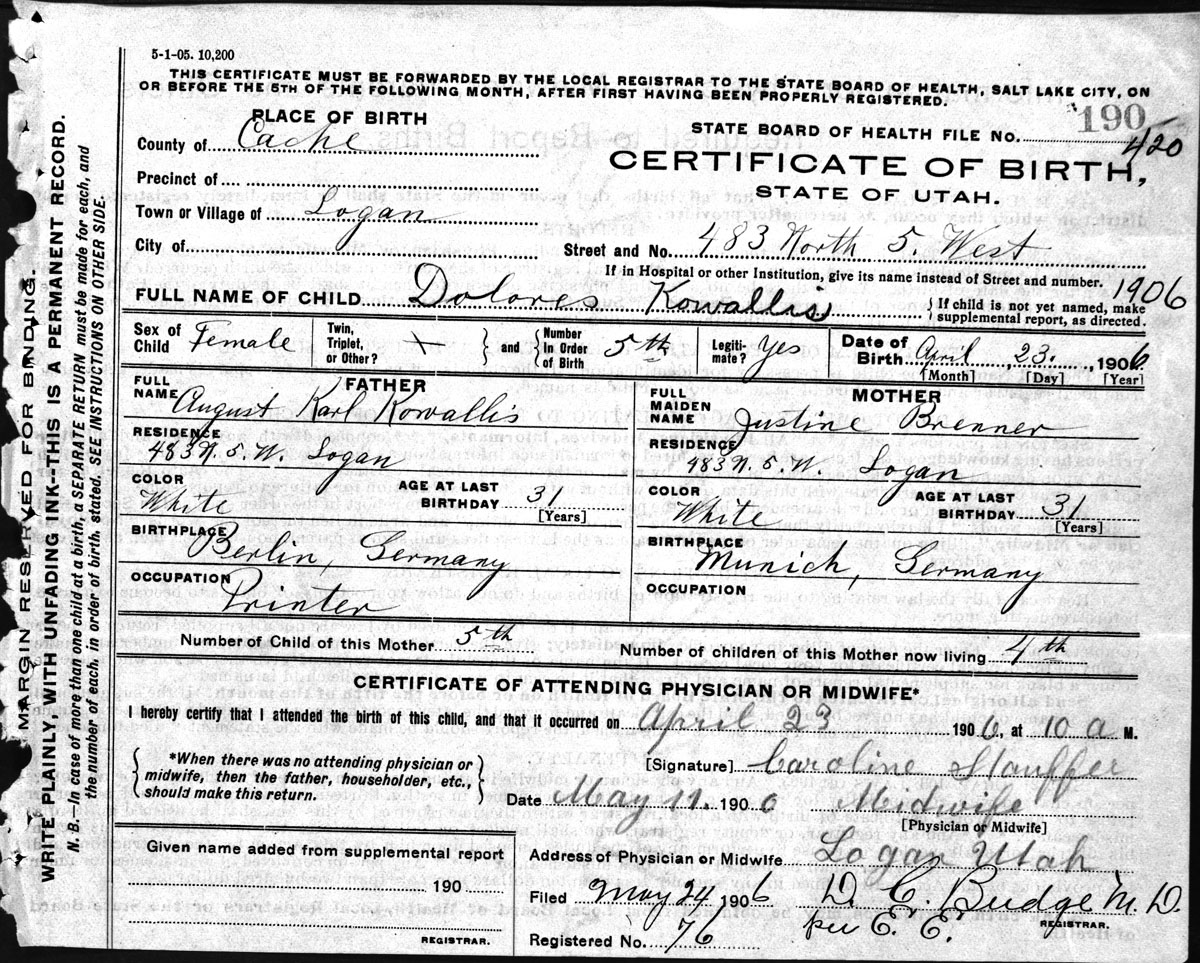 5-1-05. 10,200
THIS CERTIFICATE MUST BE FORWARDED BY THE LOCAL REGISTRAR TO THE STATE BOARD OF HEALTH, SALT LAKE CITY, ON
OR BEFORE THE 5TH OF THE FOLLOWING MONTH, AFTER FIRST HAVING BEEN PROPERLY REGISTERED.
MARGIN RESERVED FOR BINDING.
WRITE PLAINLY, WITH UNFADING INK--THIS IS A PERMANENT RECORD.
N. B.—In case of more than one child at a birth, a SEPARATE RETURN must be made for each, and
the number of each, in order of birth, stated. SEE INSTRUCTIONS ON OTHER SIDE.
PLACE OF BIRTH
County of Cache
Precinct of
Town or Village of Logan
City of
190
STATE BOARD OF HEALTH FILE No. 420
CERTIFICATE OF BIRTH,
STATE OF UTAH.
Street and No. 483 North 5. West
If in Hospital or other Institution, give its name instead of Street and number. 1906
FULL NAME OF CHILD Dolores Kowallis { If child is not yet named, make
supplemental report, as directed.
Sex of Child Female
Twin, Triplet, or Other? \ } and { Number In Order of Birth 5th
Legitimate? Yes
Date of Birth April 23. 1906
[Month] [Day] [Year]
FATHER
FULL NAME August Karl Kowallis
RESIDENCE
483 N. 5. W. Logan
COLOR White
AGE AT LAST BIRTHDAY 31 [Years]
BIRTHPLACE
Berlin, Germany
OCCUPATION
Printer
MOTHER
FULL MAIDEN NAME Justine Brenner
RESIDENCE
483 N. 5. W. Logan
COLOR White
AGE AT LAST BIRTHDAY 31 [Years]
BIRTHPLACE
Munich, Germany
OCCUPATION
Number of Child of this Mother 5th Number of children of this Mother now living 4th
CERTIFICATE OF ATTENDING PHYSICIAN OR MIDWIFE*
I hereby certify that I attended the birth of this child, and that it occurred on April 23 1906, at 10 a M.
{ *When there was no attending physician or
midwife, then the father, householder, etc.,
should make this return. }
[Signature] Caroline Stauffer
Date May 11. 1906 Midwife
[Physician or Midwife]
Given name added from supplemental report
190
REGISTRAR.
Address of Physician or Midwife Logan Utah
Filed May 24 1906 D. C. Budge M. D.
per E. E. REGISTRAR.
Registered No. 76